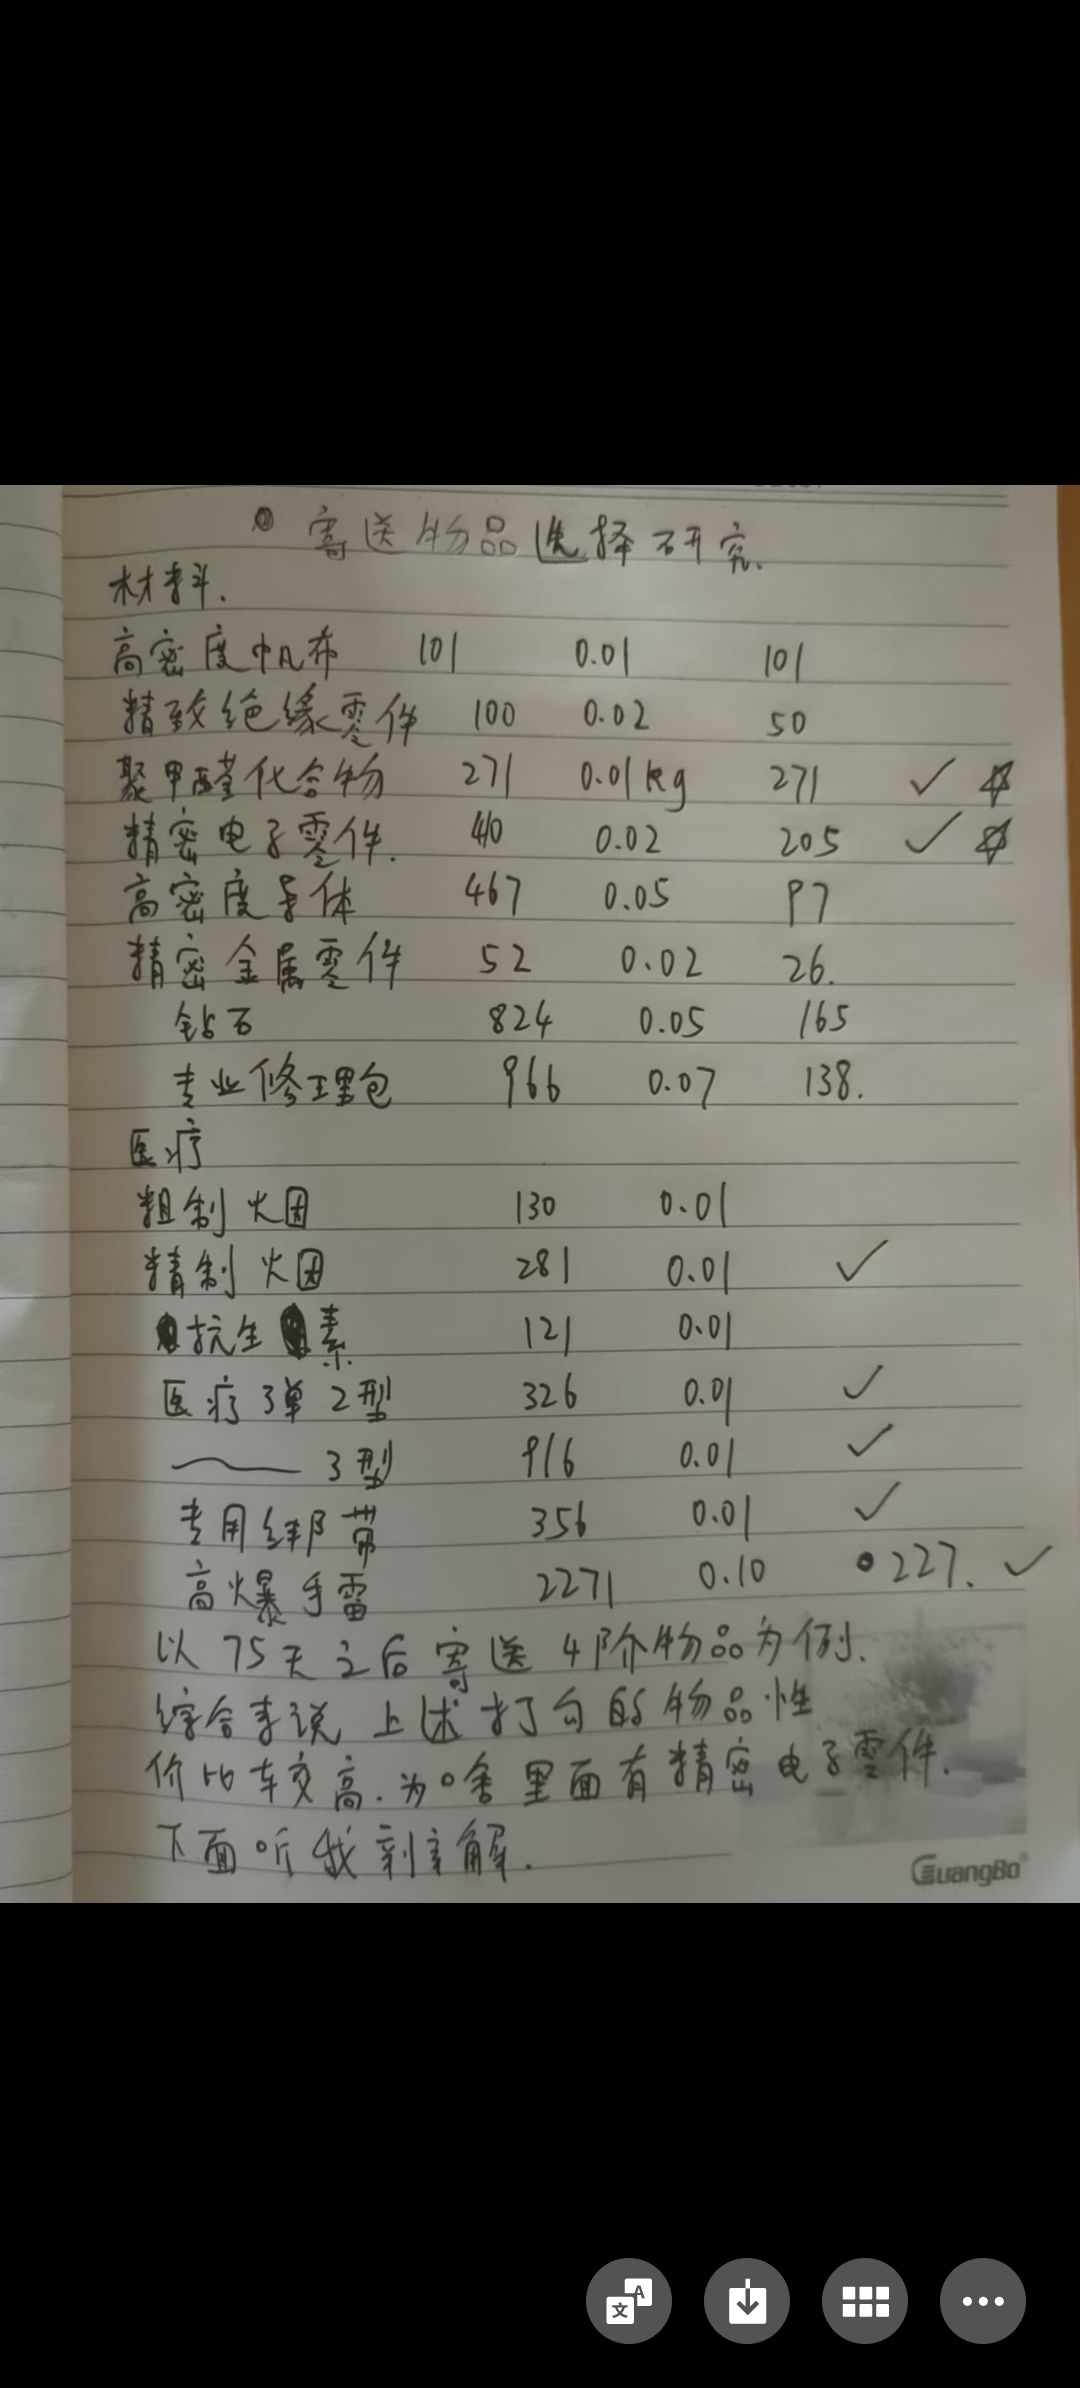 寄送物品选择研究.
材料.
高密度帆布 101 0.01 101
精致绝缘零件 100 0.02 50
聚甲醛化合物 271 0.01kg 271 ✓ ☆
精密电子零件. 410 0.02 205 ✓ ☆
高密度导体 467 0.05 97
精密金属零件 52 0.02 26.
钻石 824 0.05 165
专业修理包 966 0.07 138.
医疗
粗制火因 130 0.01
精制火因 281 0.01 ✓
抗生素 121 0.01
医疗弹2型 326 0.01 ✓
—— 3型 916 0.01 ✓
专用绑带 356 0.01 ✓
高爆手雷 2271 0.10 227. ✓
以75天之后寄送4阶物品为例.
综合来说上述打勾的物品性
价比较高.为啥里面有精密电子零件.
下面听我讲解.
GuangBo®